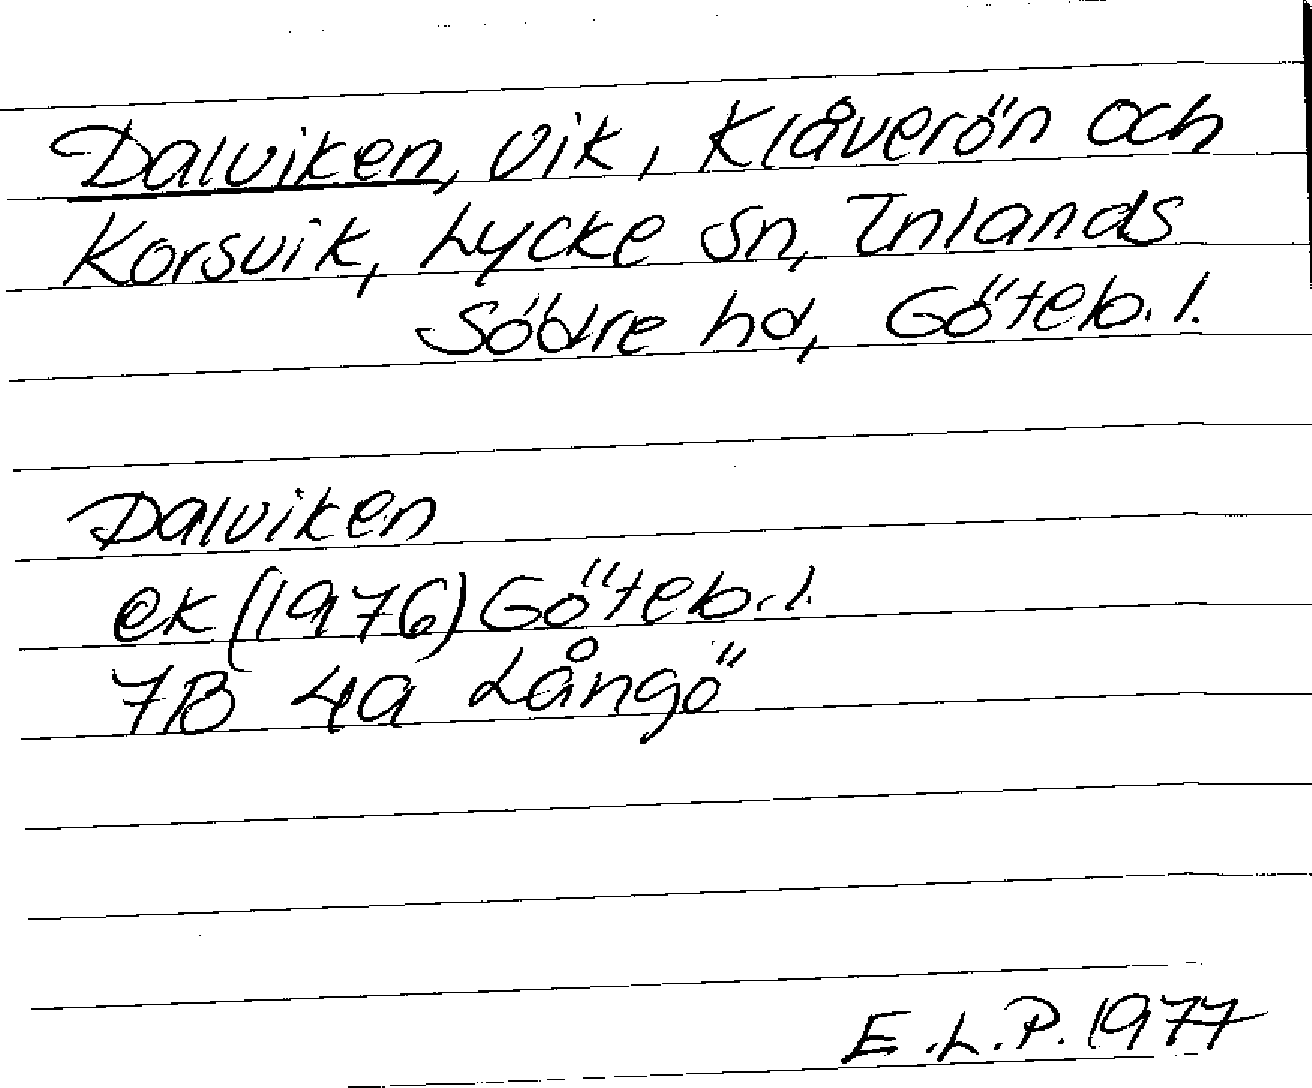 Dalviken, vik, Klåverön och
Korsvik, Lycke sn, Inlands
Södre hd, Göteb. l.
Dalviken
ek (1976) Göteb. l.
7B 4a Långö
E.L.P. 1977